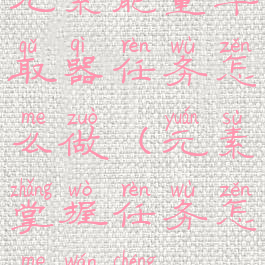 元素能量革
qǔ qì rèn wù zěn
取器任务怎
me zuò yuán sù
么做（元素
zhǎng wò rèn wù zěn
掌握任务怎
me wán chéng